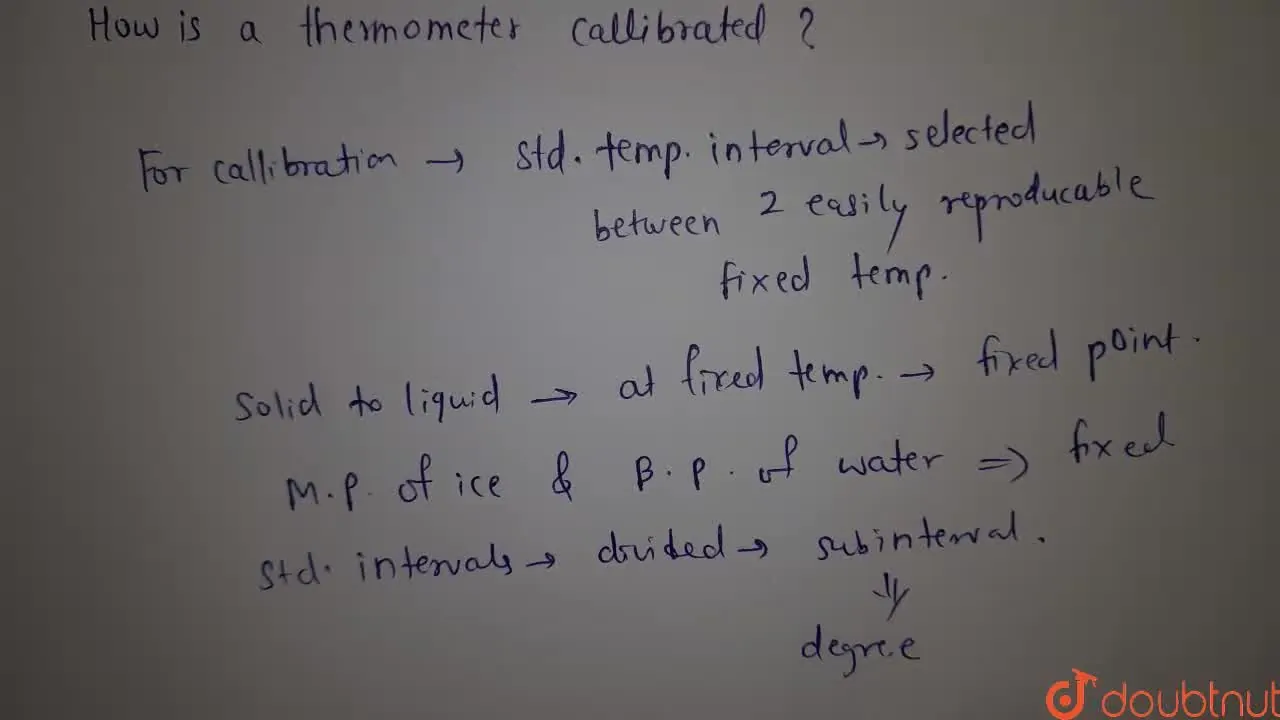 How is a thermometer callibrated?
For callibration → std. temp. interval → selected
between 2 easily reproducable
fixed temp.
Solid to liquid → at fixed temp. → fixed point.
M.P. of ice & B.P. of water ⇒ fixed
std. intervals → divided → subinterval.
⇓
degree
doubtnut